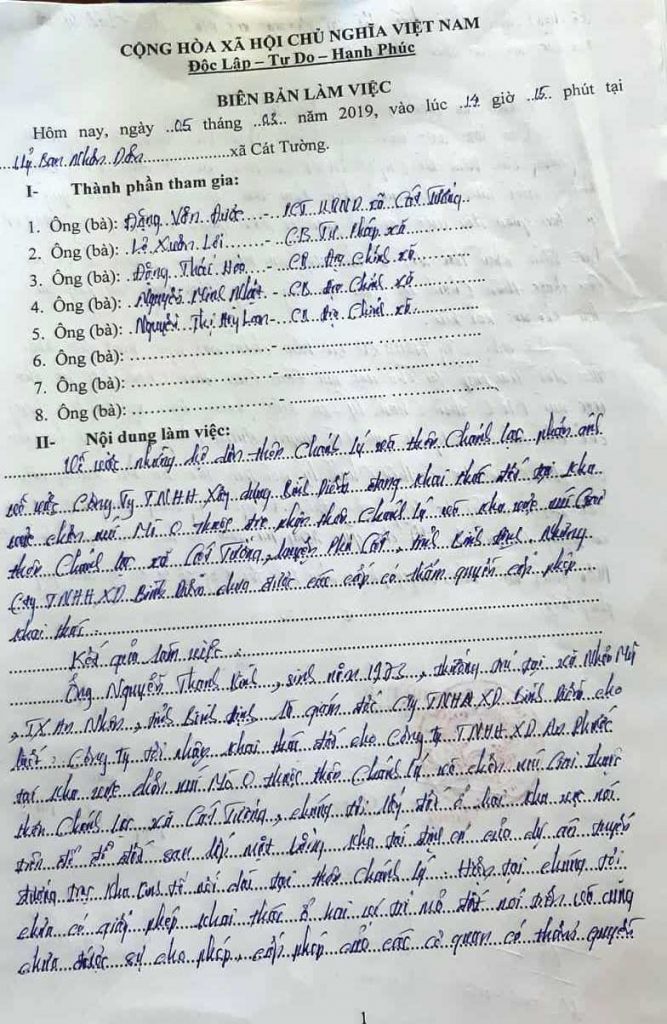 CỘNG HÒA XÃ HỘI CHỦ NGHĨA VIỆT NAM
Độc Lập – Tự Do – Hạnh Phúc
BIÊN BẢN LÀM VIỆC
Hôm nay, ngày 05 tháng 03 năm 2019, vào lúc 14 giờ 15 phút tại
Uỷ Ban Nhân Dân xã Cát Tường.
I- Thành phần tham gia:
1. Ông (bà): Đặng Văn Được - PCT UBND xã Cát Tường
2. Ông (bà): Lê Xuân Lôi - CB Tư Pháp xã
3. Ông (bà): Đặng Thái Hòa - CB địa Chính xã
4. Ông (bà): Nguyễn Minh Nhát - CB địa Chính xã
5. Ông (bà): Nguyễn Thị Mỹ Lan - CB địa Chính xã
6. Ông (bà): -
7. Ông (bà): -
8. Ông (bà): -
II- Nội dung làm việc:
Về việc những hộ dân thôn Chánh Lý và thôn Chánh Lạc phản ánh
về việc Công Ty TNHH Xây dựng Bình Diễn đang khai thác đất tại khu
vực chân núi Mò O thuộc địa phận thôn Chánh Lý và khu vực núi Gai
thôn Chánh Lạc xã Cát Tường, huyện Phù Cát, tỉnh Bình Định. Nhưng
Cty TNHH XD Bình Diễn chưa được các cấp có thẩm quyền cấp phép
khai thác.
Kết quả làm việc:
Ông Nguyễn Thanh Bình, sinh năm 1973, thường trú tại xã Nhơn Mỹ
, TX An Nhơn, tỉnh Bình Định là giám đốc Cty TNHH XD Bình Diễn cho
biết: Công Ty tôi nhận khai thác đất cho Công ty TNHH XD An Phước
tại khu vực chân núi Mò O thuộc thôn Chánh Lý và chân núi Gai thuộc
thôn Chánh Lạc xã Cát Tường, chúng tôi lấy đất ở hai khu vực nói
trên để đổ đất san lấp mặt bằng khu tái định cư của dự án tuyến
đường trục Khu Kinh tế nối dài tại thôn Chánh Lý. Hiện tại chúng tôi
chưa có giấy phép khai thác ở hai vị trí mỏ đất nói trên và cũng
chưa được sự cho phép, cấp phép của các cơ quan có thẩm quyền
1